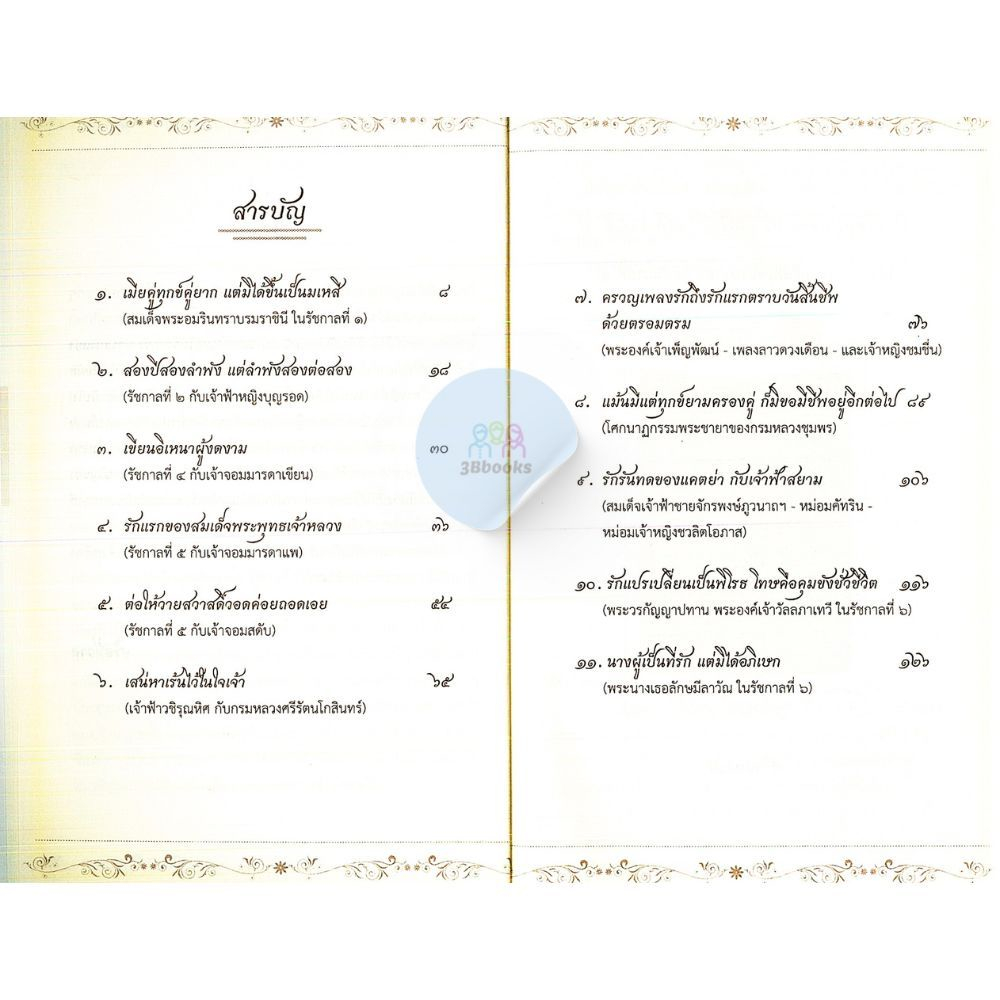 สารบัญ
๑. เมียคู่ทุกข์คู่ยาก แต่มิได้ขึ้นเป็นมเหสี ๘
(สมเด็จพระอมรินทราบรมราชินี ในรัชกาลที่ ๑)
๒. สองปีสองลำพัง แต่ลำพังสองต่อสอง ๑๘
(รัชกาลที่ ๒ กับเจ้าฟ้าหญิงบุญรอด)
๓. เขียนอิเหนาผู้งดงาม ๓๐
(รัชกาลที่ ๔ กับเจ้าจอมมารดาเขียน)
๔. รักแรกของสมเด็จพระพุทธเจ้าหลวง ๓๖
(รัชกาลที่ ๕ กับเจ้าจอมมารดาแพ)
๕. ต่อให้วายสวาสดิ์วอดค่อยถอดเอย ๕๔
(รัชกาลที่ ๕ กับเจ้าจอมสดับ)
๖. เสน่หาเร้นไว้ในใจเจ้า ๖๕
(เจ้าฟ้าวชิรุณหิศ กับกรมหลวงศรีรัตนโกสินทร์)
3Bbooks
๗. ครวญเพลงรักถึงรักแรกตราบวันสิ้นชีพ
ด้วยตรอมตรม ๗๖
(พระองค์เจ้าเพ็ญพัฒน์ - เพลงลาวดวงเดือน - และเจ้าหญิงชมชื่น)
๘. แม้นมีแต่ทุกข์ยามครองคู่ ก็มิขอมีชีพอยู่อีกต่อไป ๘๙
(โศกนาฏกรรมพระชายาของกรมหลวงชุมพร)
๙. รักรันทดของแคตย่า กับเจ้าฟ้าสยาม ๑๐๖
(สมเด็จเจ้าฟ้าชายจักรพงษ์ภูวนาถฯ - หม่อมคัทริน -
หม่อมเจ้าหญิงชวลิตโอภาส)
๑๐. รักแปรเปลี่ยนเป็นพิโรธ โทษคือคุมขังชั่วชีวิต ๑๑๖
(พระวรกัญญาปทาน พระองค์เจ้าวัลลภาเทวี ในรัชกาลที่ ๖)
๑๑. นางผู้เป็นที่รัก แต่มิได้อภิเษก ๑๒๖
(พระนางเธอลักษมีลาวัณ ในรัชกาลที่ ๖)